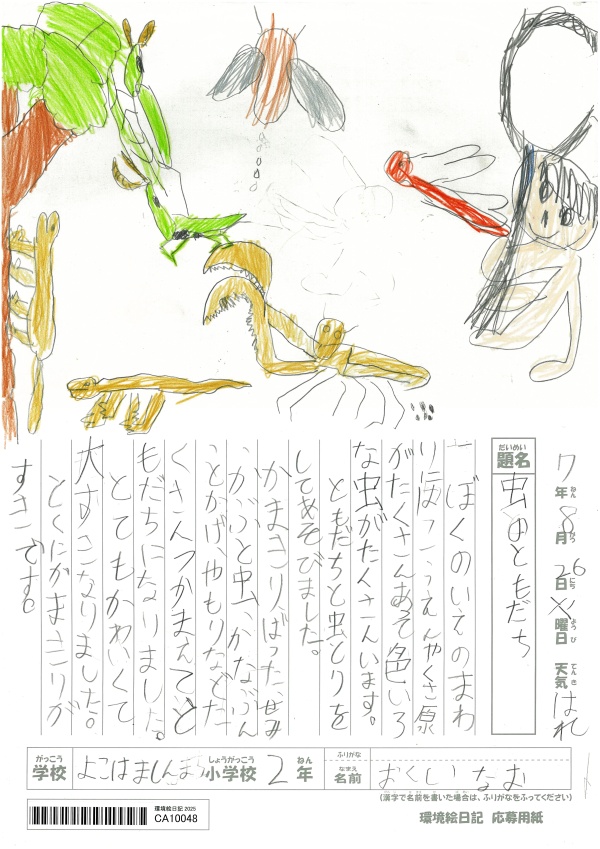 7年8月26日火曜日 天気はれ
ねん がつ にち ようび てんき
だいめい
題名 虫のともだち
ぼくのいえのまわ
りにはこうえんやくさ原
がたくさんあそ色いろ
な虫がたくさんいます。
ともだちと虫とりを
してあそびました。
かまきり、ばった、せみ
、かぶと虫、かなぶん
、とかげ、やもりなどた
くさんつかまえてと
もだちになりました。
とてもかわいくて
大すきになりました。
とくにかまきりが
すきです。
がっこう しょうがっこう ねん ふりがな
学校 よこはましん 小学校 2年
なまえ
名前 おくい なお
(漢字で名前を書いた場合は、ふりがなをふってください)
環境絵日記 2025
CA10048
環境絵日記 応募用紙